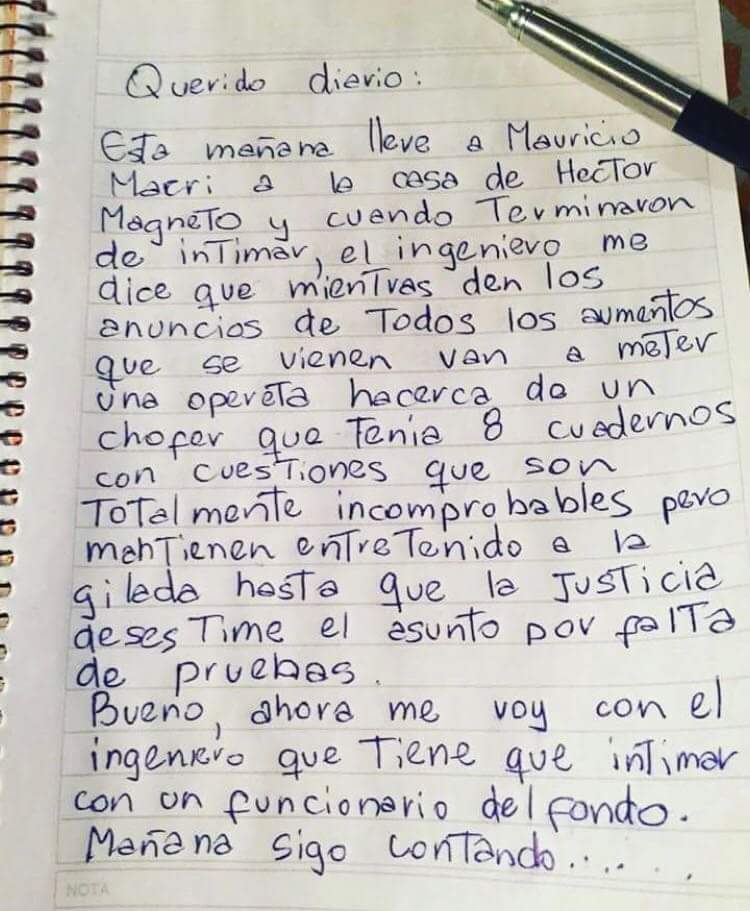 Querido diario:
Esta mañana lleve a Mauricio
Macri a la casa de Hector
Magneto y cuando Terminaron
de inTimar, el ingeniero me
dice que mienTras den los
anuncios de Todos los aumentos
que se vienen van a meTer
una opereta hacerca de un
chofer que Tenia 8 cuadernos
con cuesTiones que son
ToTalmente incomprobables pero
manTienen entreTenido a la
gilada hasta que la JusTicia
desesTime el asunto por falTa
de pruebas.
Bueno, ahora me voy con el
ingeniero que Tiene que inTimar
con un funcionario del fondo.
Mañana sigo conTando......
NOTA